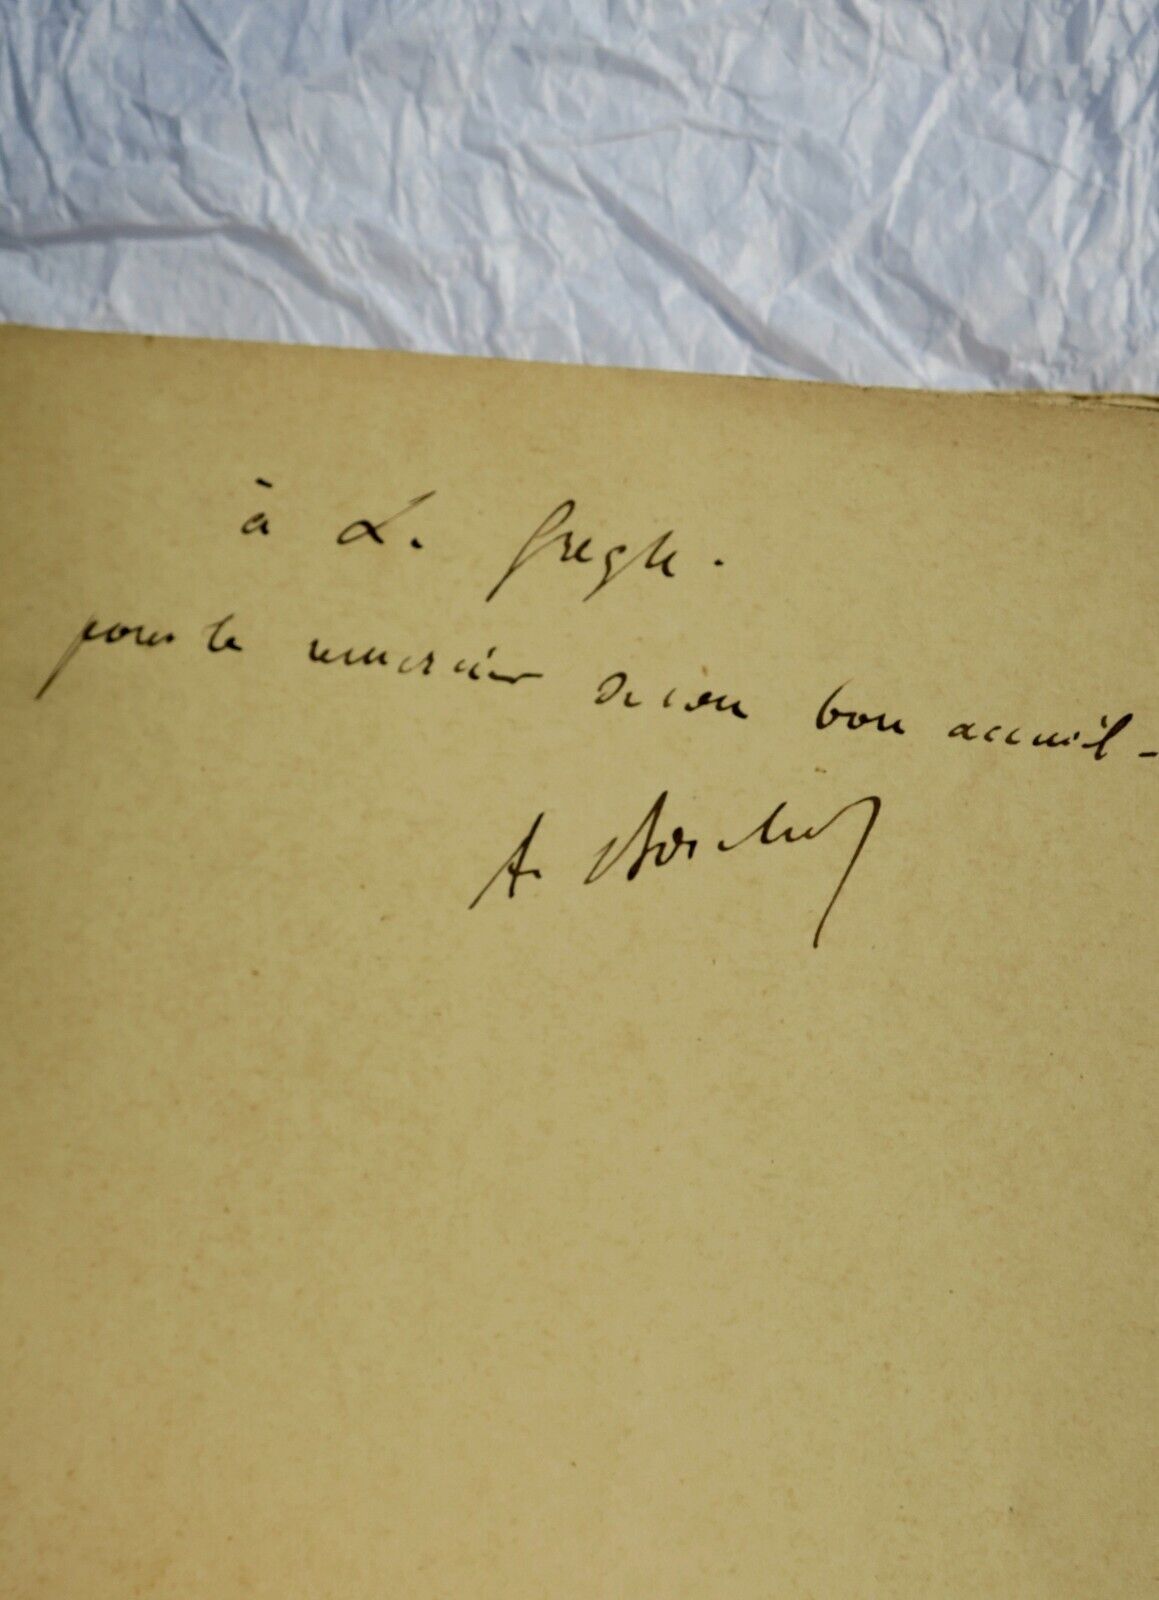 à L. Gregh.
pour le remercier de son bon accueil -
A.